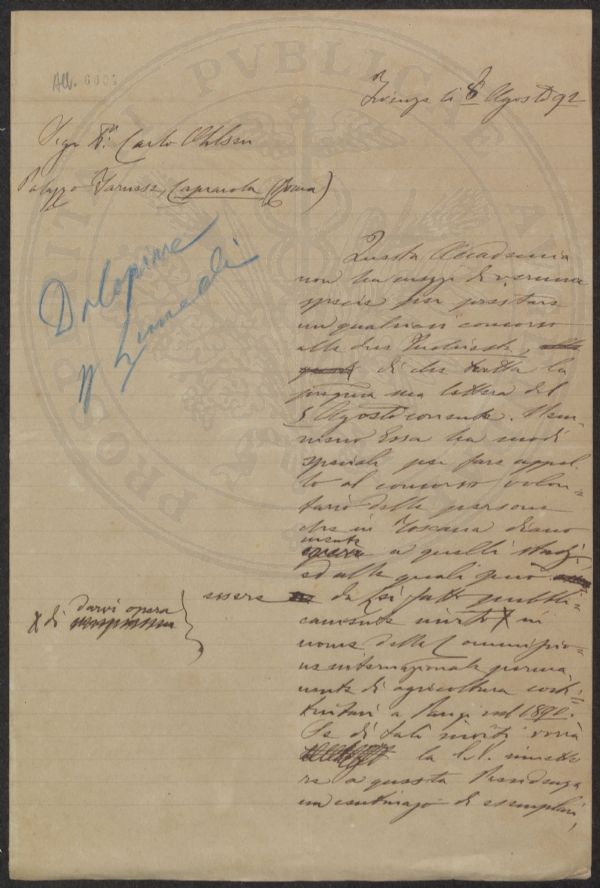 All. 6691
Firenze li 8 Agosto 92
Sigr Dr. Carlo Ohlsen
Palazzo Farnese, Caprarola (Roma)
Questa Accademia
non ha mezzi di veruna
specie per prestare
un qualsiasi concorso
alle due inchieste,
di che tratta la
pregiata sua lettera del
5 Agosto corrente. Nem-
meno Essa ha modi
speciali per fare appel-
lo al concorso volon-
tario delle persone
che in Toscana diano
mente a quelli studj,
ed alle quali può
essere da fatto pubbli-
camente invito X in
X di darvi opera
nome della Commissio-
ne internazionale perma-
nente di agricoltura costi-
tuitasi a Parigi nel 1890.
Se di tali inviti vorrà
la S.V. rimette-
re a questa Presidenza
un centinajo di esemplari,
PROSPERITATI PUBLICAE AUGENDAE